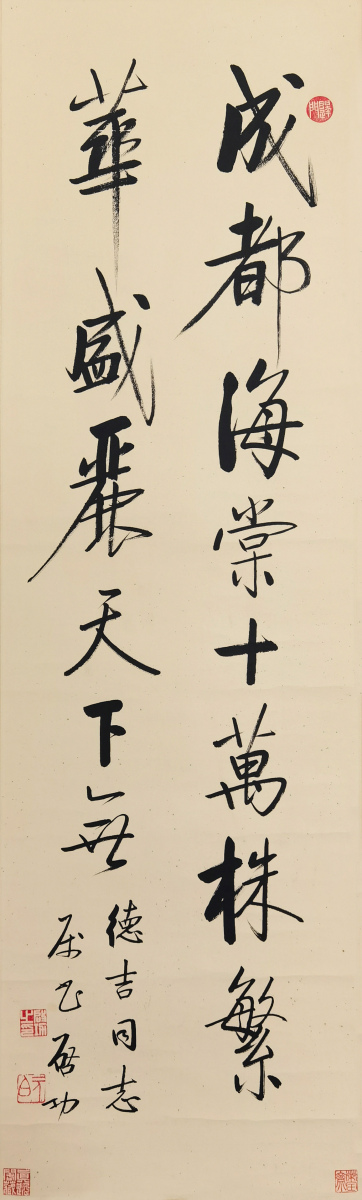 成都海棠十萬株繁
華盛麗天下無
德吉同志
属书 启功